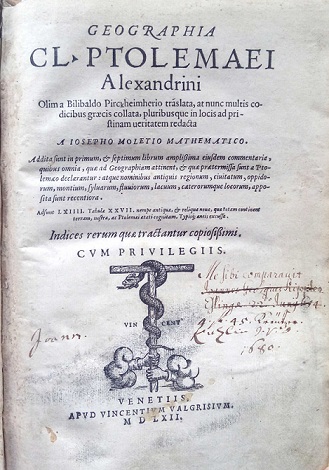 GEOGRAPHIA
CL. PTOLEMAEI
Alexandrini
Olim a Bilibaldo Pirckheimherio trãslata, at nunc multis co-
dicibus græcis collata, pluribusque in locis ad pri-
stinam ueritatem redacta
A IOSEPHO MOLETIO MATHEMATICO.
Addita sunt in primum, & septimum librum amplissima eiusdem commentaria,
quibus omnia, quæ ad Geographiam attinent, & quæ prætermissa sunt a Pto-
lemæo declarantur: atque nominibus antiquis regionum, ciuitatum, oppido-
rum, montium, syluarum, fluuiorum, lacuum, cæterorumque locorum, appo-
sita sunt recentiora.
Adsunt LXIIII. Tabulæ XXVII. nempe antiquæ, & reliquæ nouæ, quæ totam continent
terram, nostræ, ac Ptolemæi ætati cognitam, Typisque æneis excussæ.
Indices rerum quæ tractantur copiosissimi.
CVM PRIVILEGIIS.
Me sibi comparauit
Joann
VIN CENT
1680.
VENETIIS,
APVD VINCENTIVM VALGRISIVM.
M D LXII.